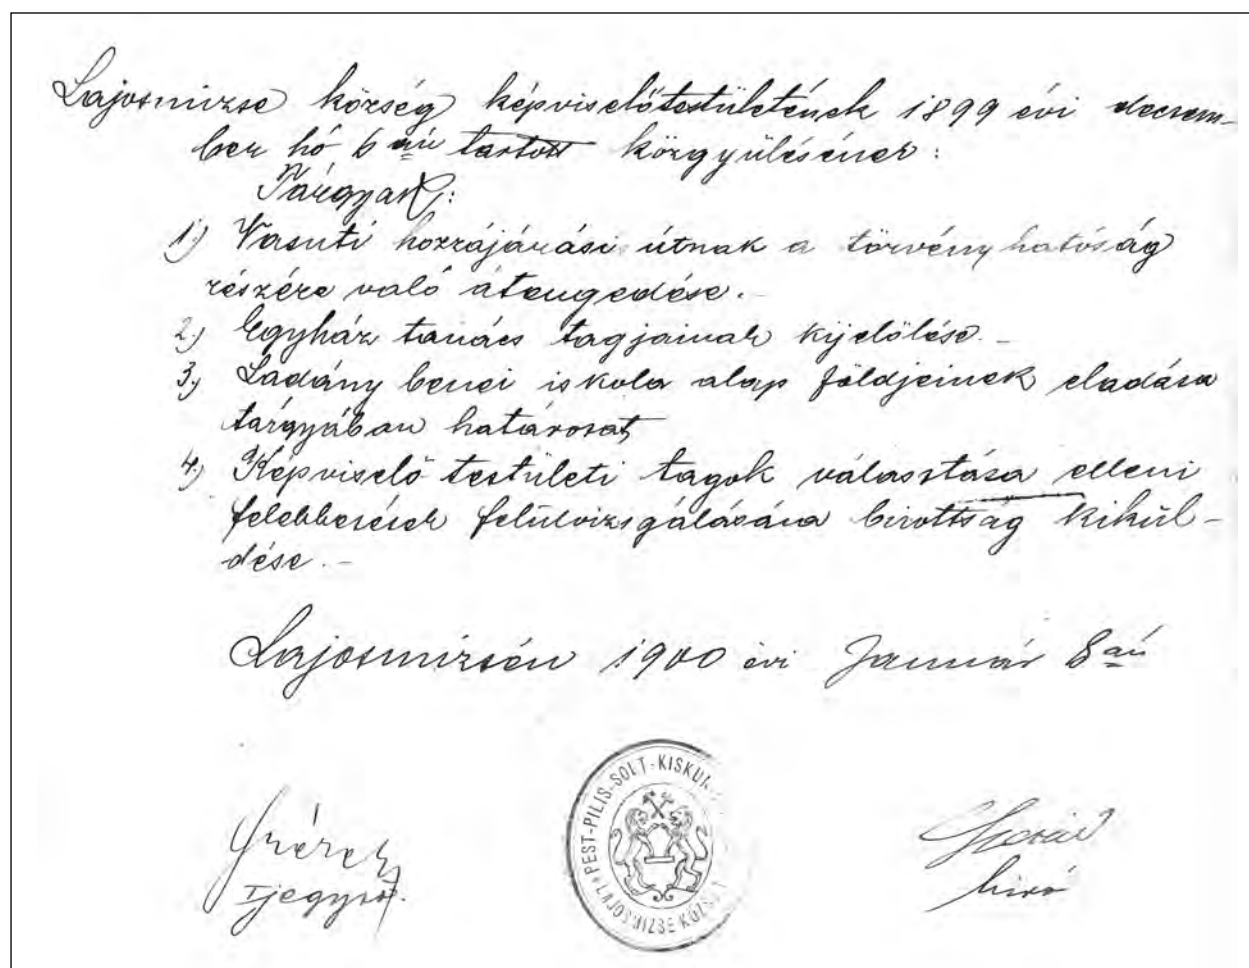 Lajosmizse község képviselőtestületének 1899 évi decem-
ber hó 6 án tartott közgyülésének:
Tárgyak:
1.) Vasuti hozzájárási útnak a törvényhatóság
részére való átengedése.-
2.) Egyház tanács tagjainak kijelölése.-
3.) Ladány benei iskola alap földjeinek eladása
tárgyában határozat
4.) Képviselő testületi tagok választása elleni
felebbezések felülvizsgálására bizottság kikül-
dése.-
Lajosmizsén 1900 évi Január 8 án
PEST-PILIS-SOLT-KISKUN
LAJOSMIZSE KÖZSÉ
jegyző.
biró